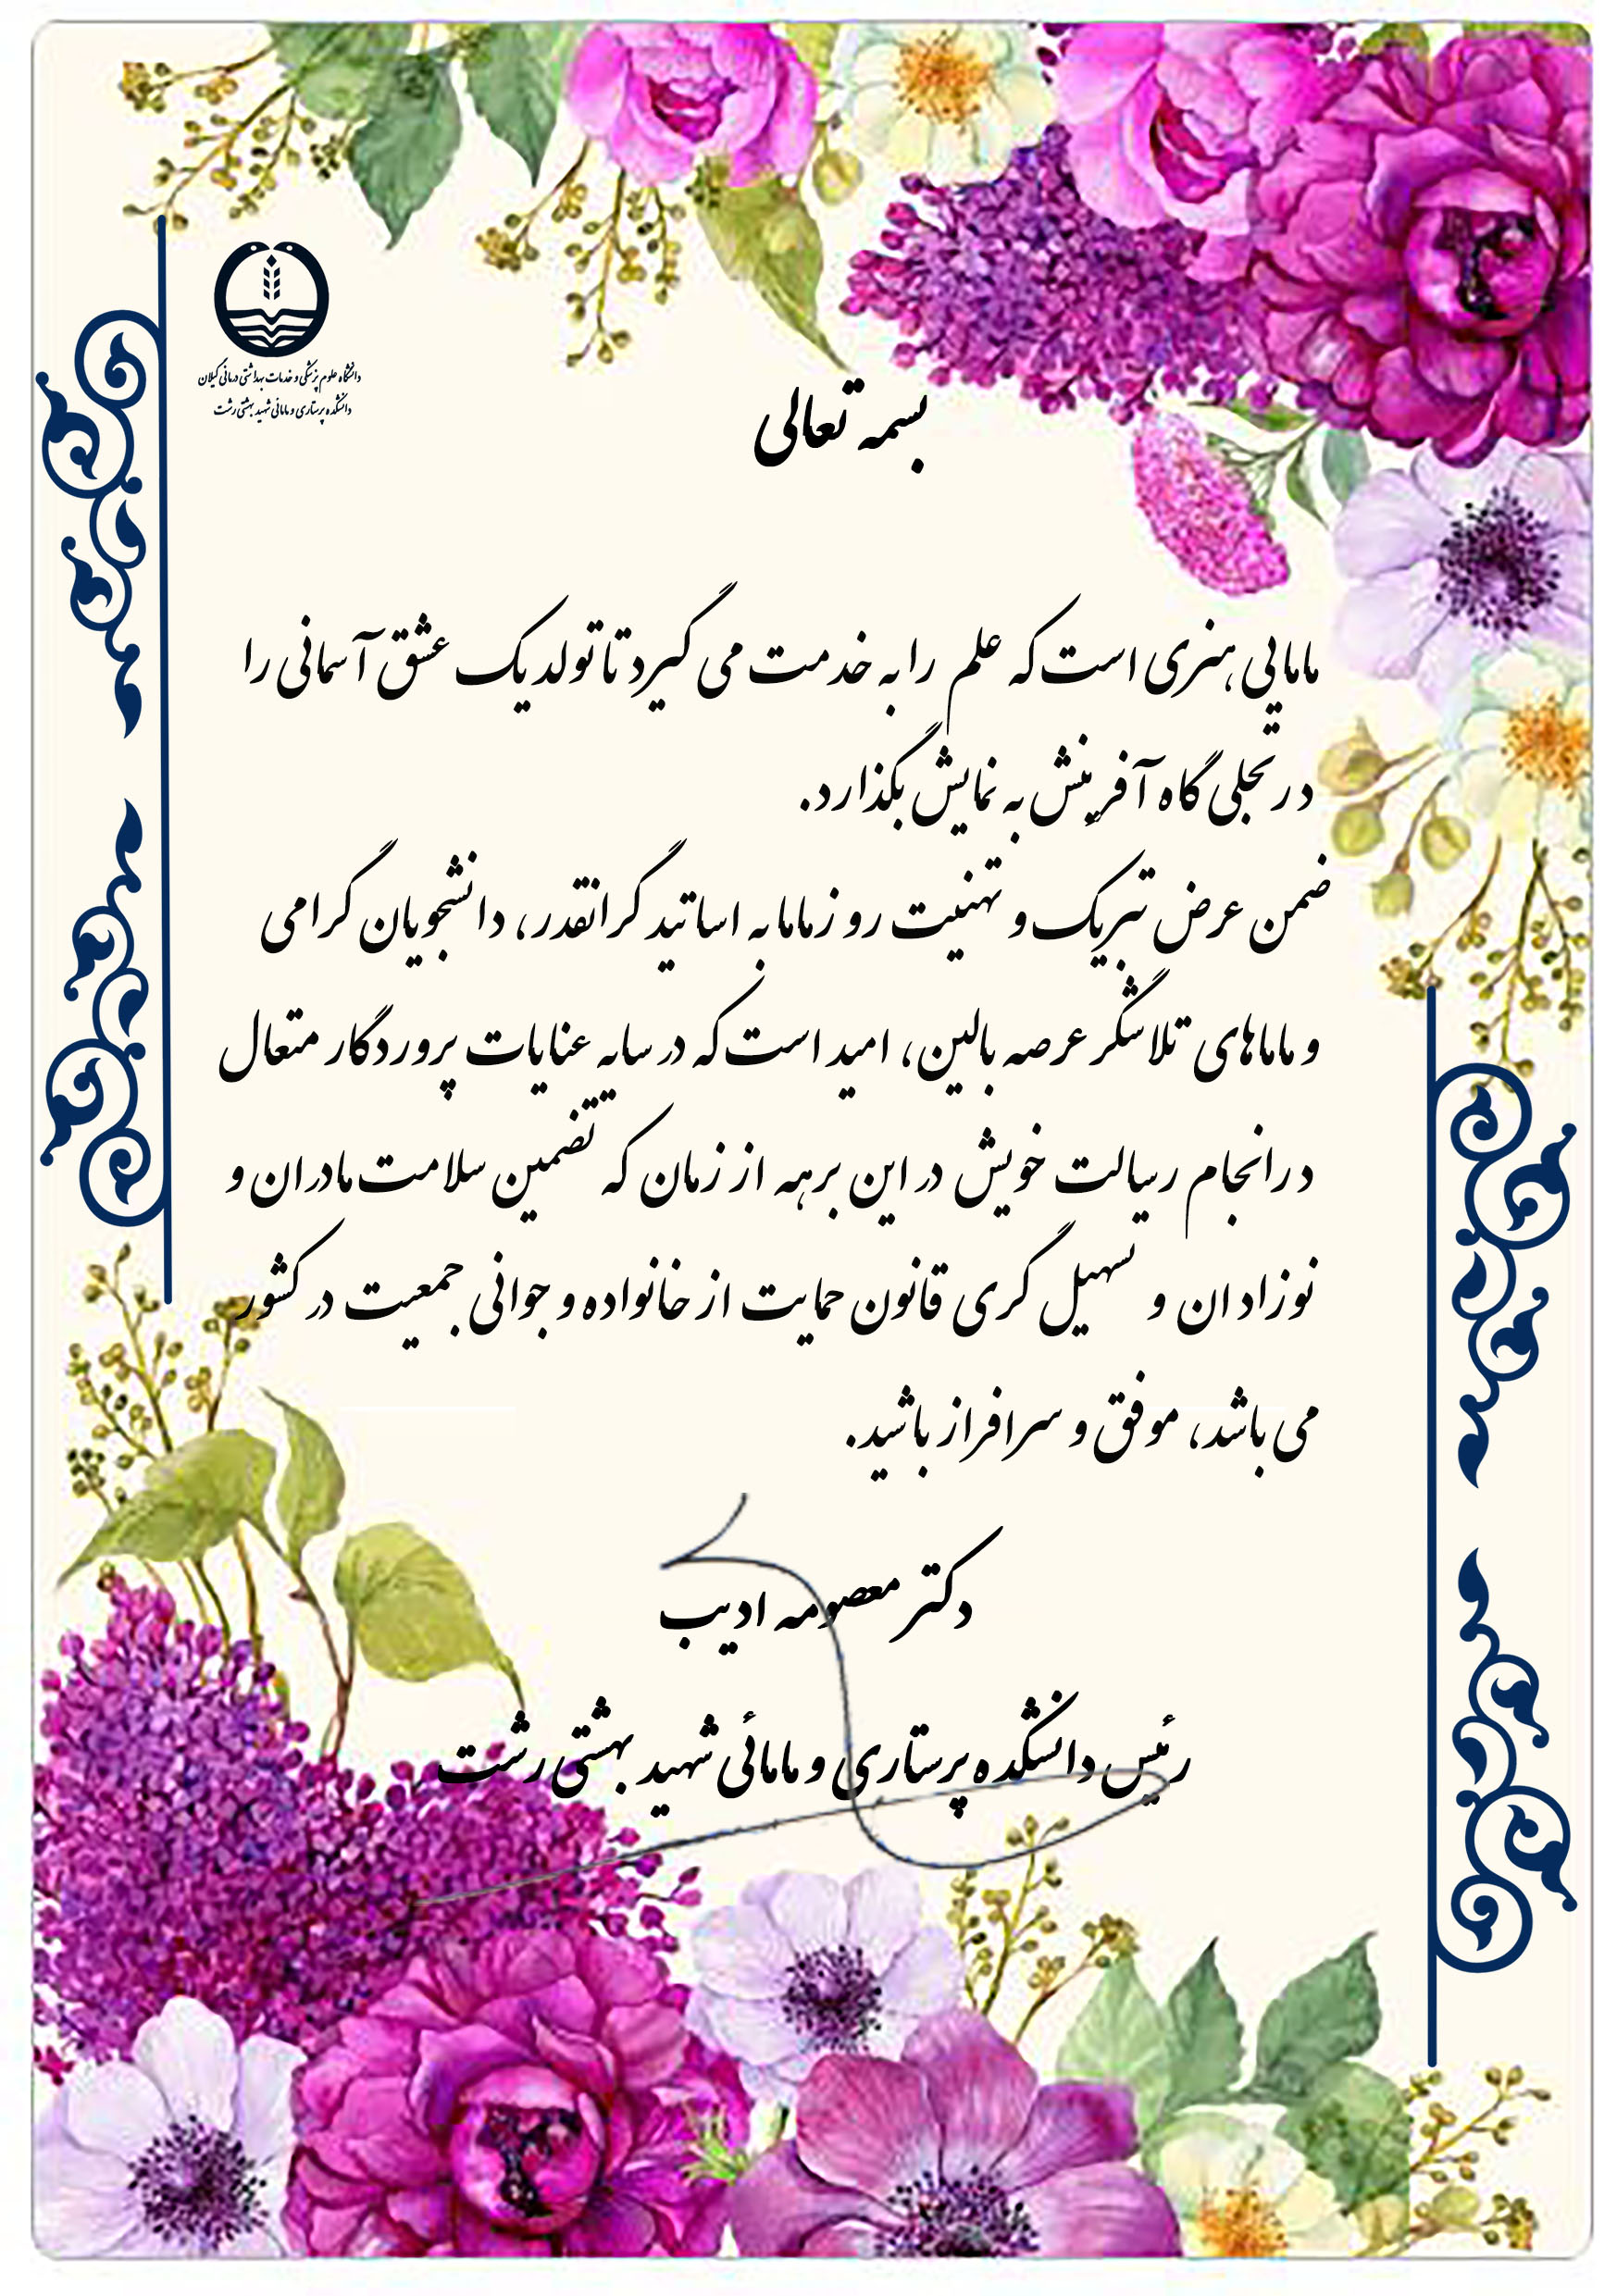 دانشگاه علوم پزشکی و خدمات بهداشتی درمانی گیلان
دانشکده پرستاری و مامانی شهید بهشتی رشت
بسمه تعالی
مامایی هنری است که علم را به خدمت می گیرد تا تولد یک عشق آسمانی را
در تجلی گاه آفرینش به نمایش بگذارد.
ضمن عرض تبریک و تهنیت روز ماما به اساتید گرانقدر، دانشجویان گرامی
و ماماهای تلاشگر عرصه بالین، امید است که در سایه عنایات پروردگار متعال
در انجام رسالت خویش در این برهه از زمان که تضمین سلامت مادران و
نوزادان و تسهیل گری قانون حمایت از خانواده و جوانی جمعیت در کشور
می باشد، موفق و سرافراز باشید.
دکتر معصومه ادیب
رئیس دانشکده پرستاری و مامائی شهید بهشتی رشت